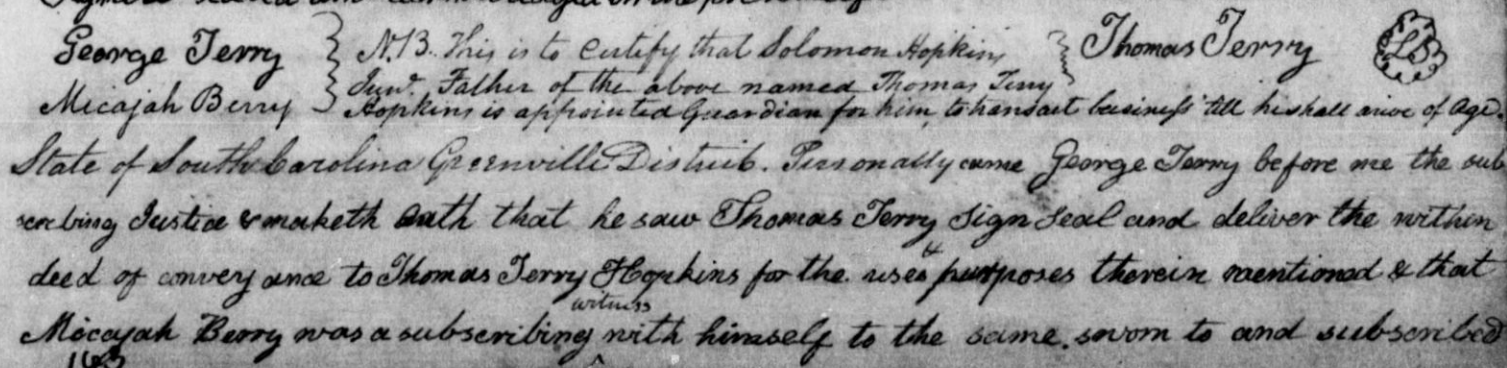 George Terry } N.B. This is to Certify that Solomon Hopkins } Thomas Terry LS
Junr. Father of the above named Thomas Terry
Micajah Berry } Hopkins is appointed Guardian for him, to transact business till he shall arive of Age.
State of South Carolina Greenville District. Personally came George Terry before me the sub
scribing Justice & maketh oath that he saw Thomas Terry Sign Seal and deliver the within
deed of convey ance to Thomas Terry Hopkins for the uses & purposes therein mentioned & that
Micajah Berry was a subscribing witness with himself to the same. sworn to and subscribed